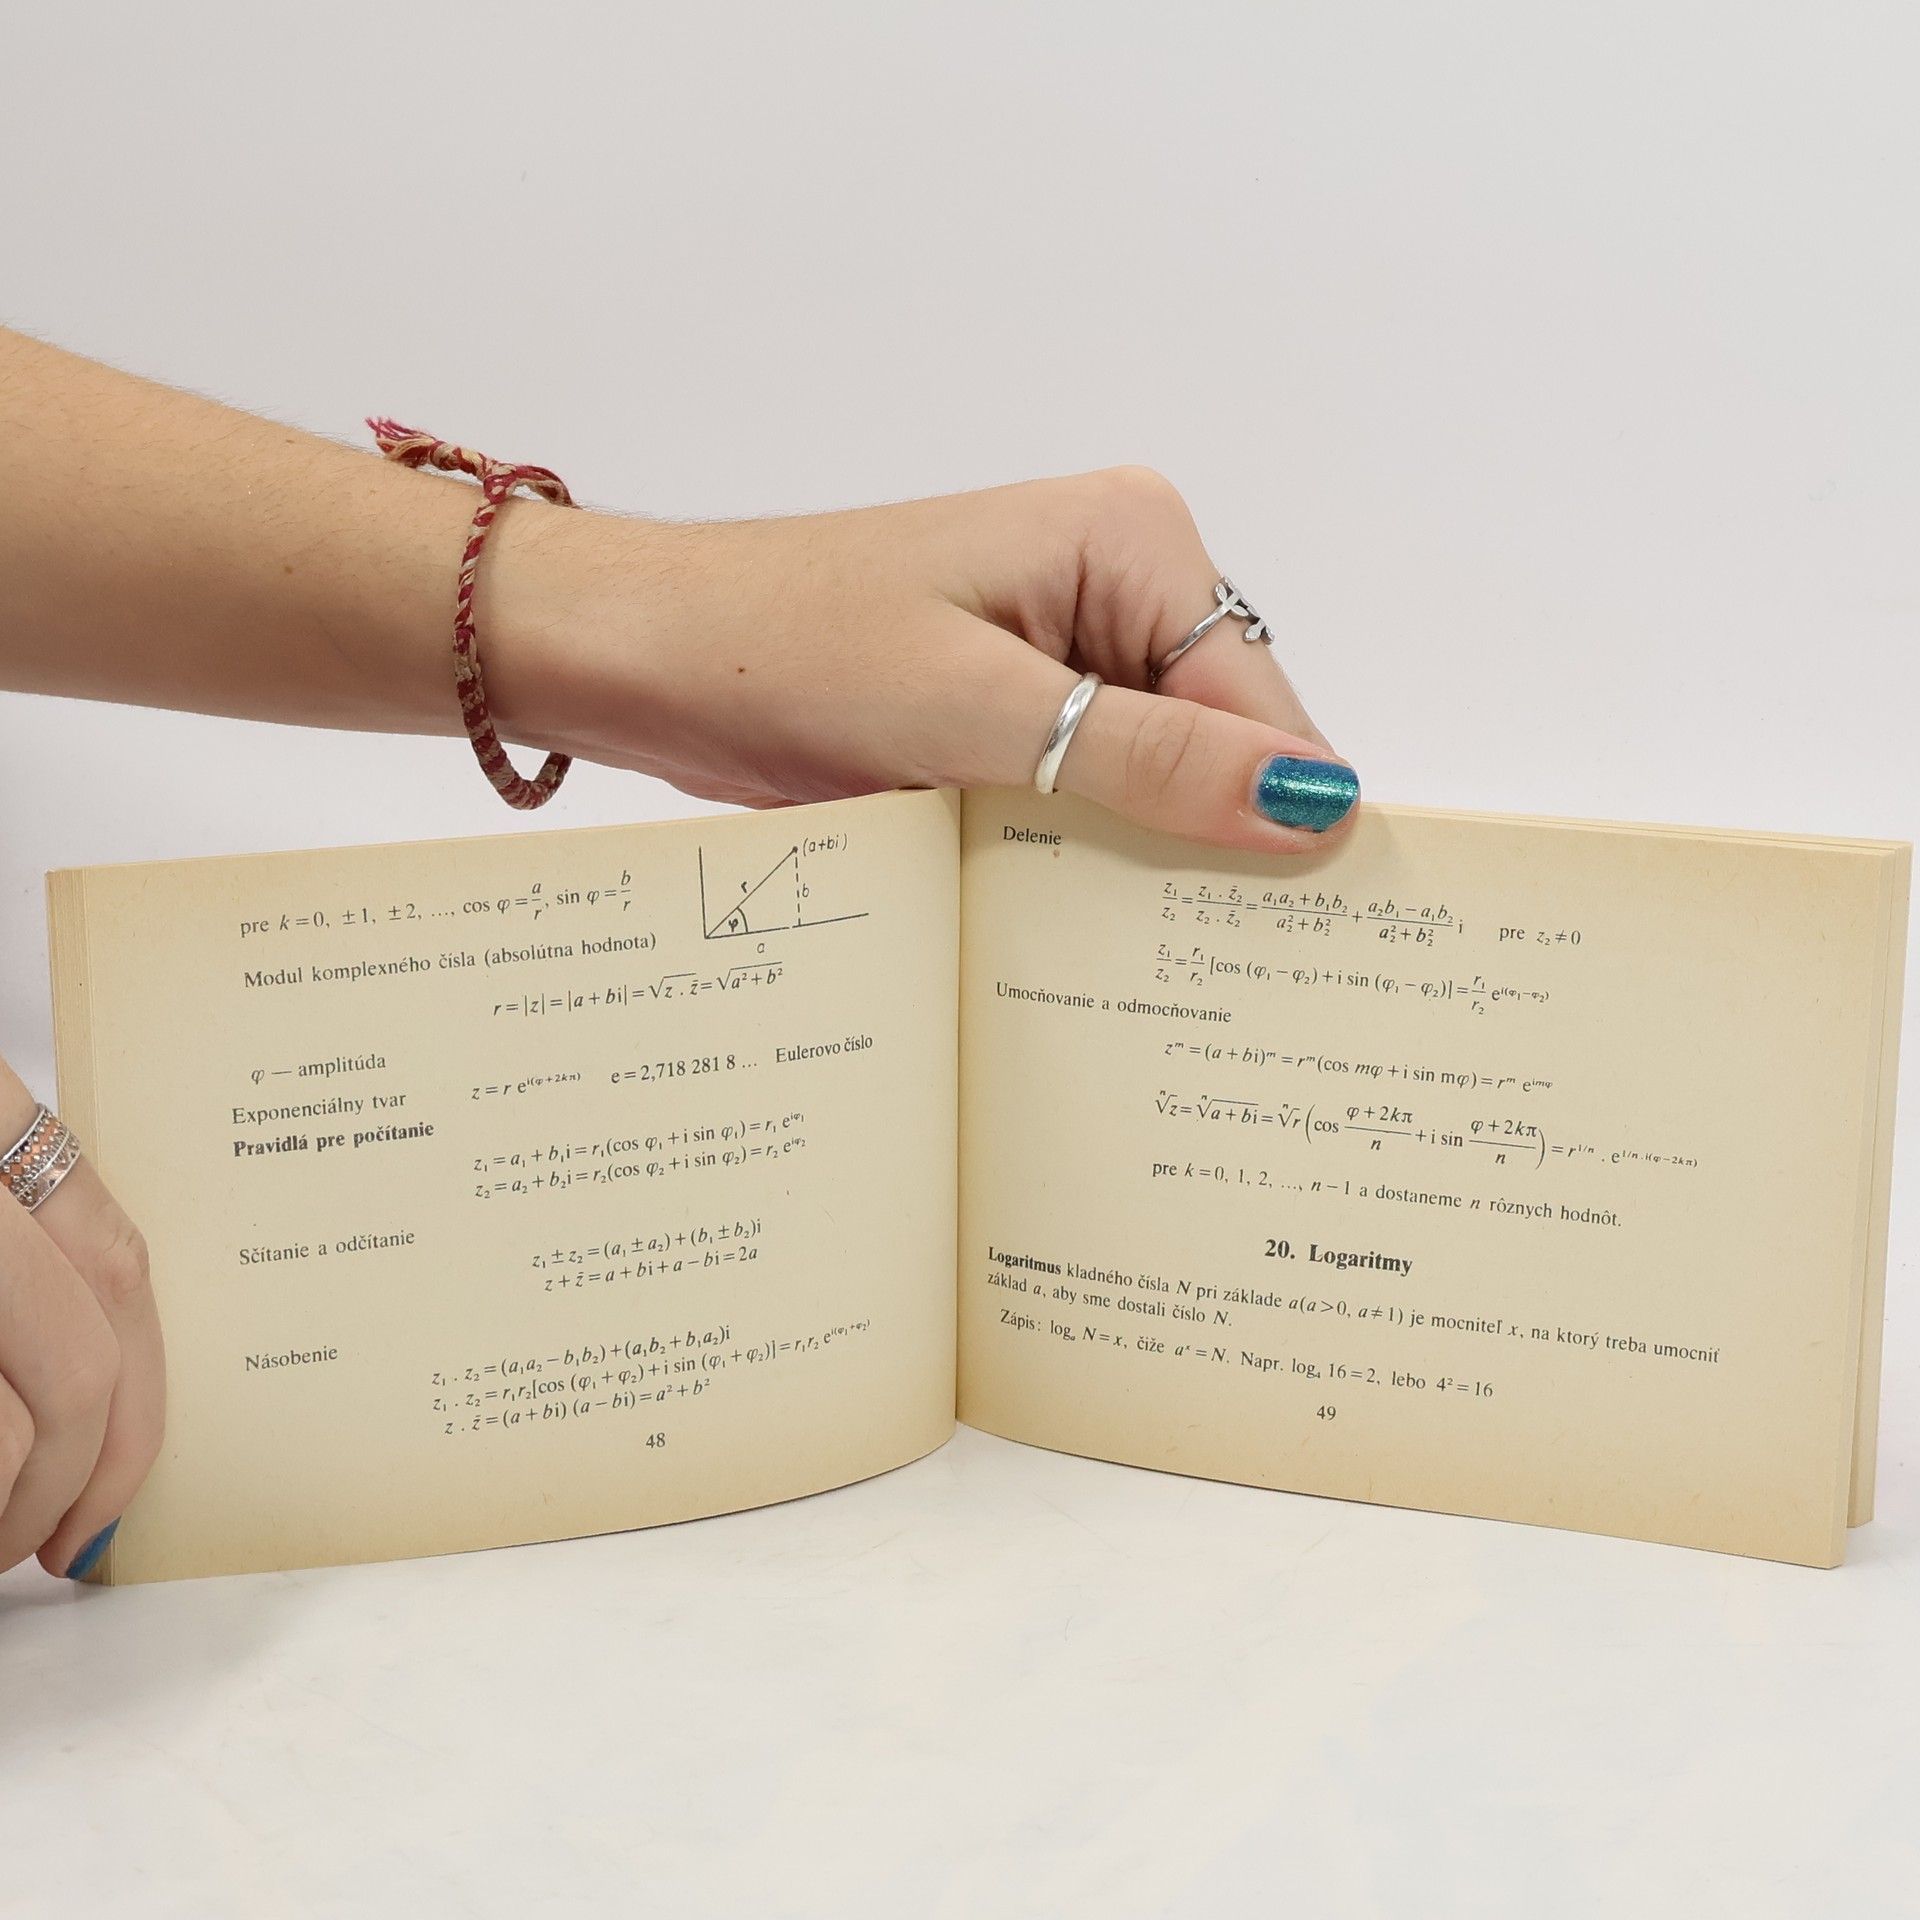 pre k = 0, ±1, ±2, ..., cos φ = a/r, sin φ = b/r
(a+bi)
r
b
φ
a
Modul komplexného čísla (absolútna hodnota)
r = |z| = |a + bi| = √z . z̄ = √a² + b²
φ — amplitúda
Exponenciálny tvar
z = r e^i(φ+2kπ) e = 2,718 281 8 ... Eulerovo číslo
Pravidlá pre počítanie
z₁ = a₁ + b₁i = r₁(cos φ₁ + i sin φ₁) = r₁ e^iφ₁
z₂ = a₂ + b₂i = r₂(cos φ₂ + i sin φ₂) = r₂ e^iφ₂
Sčítanie a odčítanie
z₁ ± z₂ = (a₁ ± a₂) + (b₁ ± b₂)i
z + z̄ = a + bi + a − bi = 2a
Násobenie
z₁ . z₂ = (a₁a₂ − b₁b₂) + (a₁b₂ + b₁a₂)i
z₁ . z₂ = r₁r₂[cos (φ₁ + φ₂) + i sin (φ₁ + φ₂)] = r₁r₂ e^i(φ₁+φ₂)
z . z̄ = (a + bi) (a − bi) = a² + b²
48
Delenie
z₁/z₂ = z₁ . z̄₂/z₂ . z̄₂ = a₁a₂ + b₁b₂/a₂² + b₂² + a₂b₁ − a₁b₂/a₂² + b₂² i pre z₂ ≠ 0
z₁/z₂ = r₁/r₂ [cos (φ₁ − φ₂) + i sin (φ₁ − φ₂)] = r₁/r₂ e^i(φ₁−φ₂)
Umocňovanie a odmocňovanie
zᵐ = (a + bi)ᵐ = rᵐ(cos mφ + i sin mφ) = rᵐ e^imφ
ⁿ√z = ⁿ√a + bi = ⁿ√r (cos φ + 2kπ/n + i sin φ + 2kπ/n) = r^1/n . e^1/n . i(φ−2kπ)
pre k = 0, 1, 2, ..., n − 1 a dostaneme n rôznych hodnôt.
20. Logaritmy
Logaritmus kladného čísla N pri základe a(a > 0, a ≠ 1) je mocniteľ x, na ktorý treba umocniť
základ a, aby sme dostali číslo N.
Zápis: logₐ N = x, čiže aˣ = N. Napr. log₄ 16 = 2, lebo 4² = 16
49